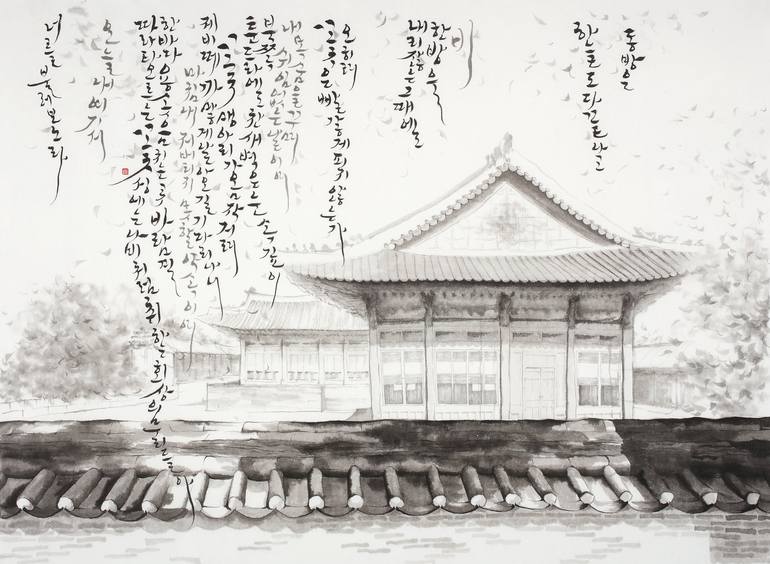 동방은
하늘도 다 끝나고
비
한 방울
내리잖는 그 때에도
오히려
꽃은 빨갛게 피지 않는가
내 목숨을 꾸며
쉬임 없는 날이여
북쪽
툰드라에도 찬 새벽은 눈 속 깊이
꽃 맹아리가 옴작거려
제비떼 까맣게 날아오길 기다리나니
마침내 저버리지 못할 약속이여
한바다 용솟음치는 곳 바람결
따라 타오르는 꽃성에는 나비처럼 취하는 회상의 무리들아
오늘 내 여기서
너를 불러보노라